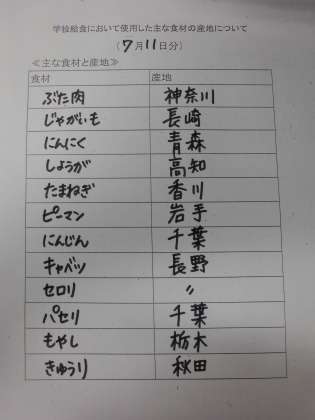 学校給食において使用した主な食材の産地について
(7月11日分)
≪主な食材と産地≫
食材 産地
ぶた肉 神奈川
じゃがいも 長崎
にんにく 青森
しょうが 高知
たまねぎ 香川
ピーマン 岩手
にんじん 千葉
キャベツ 長野
セロリ 〃
パセリ 千葉
もやし 栃木
きゅうり 秋田